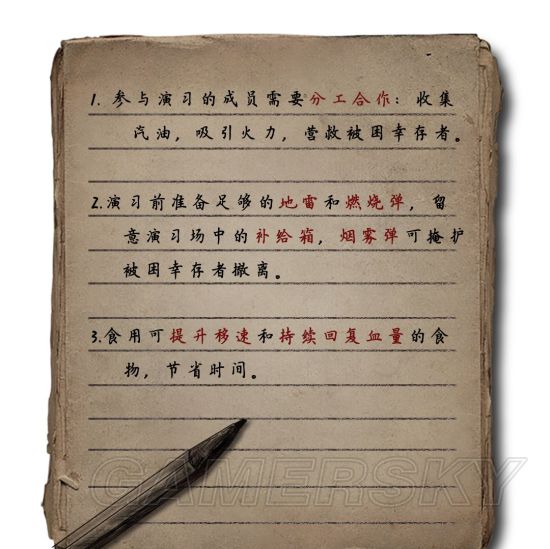 1. 参与演习的成员需要分工合作：收集
汽油，吸引火力，营救被困幸存者。
2.演习前准备足够的地雷和燃烧弹，留
意演习场中的补给箱，烟雾弹可掩护
被困幸存者撤离。
3.食用可提升移速和持续回复血量的食
物，节省时间。
GAMERSKY